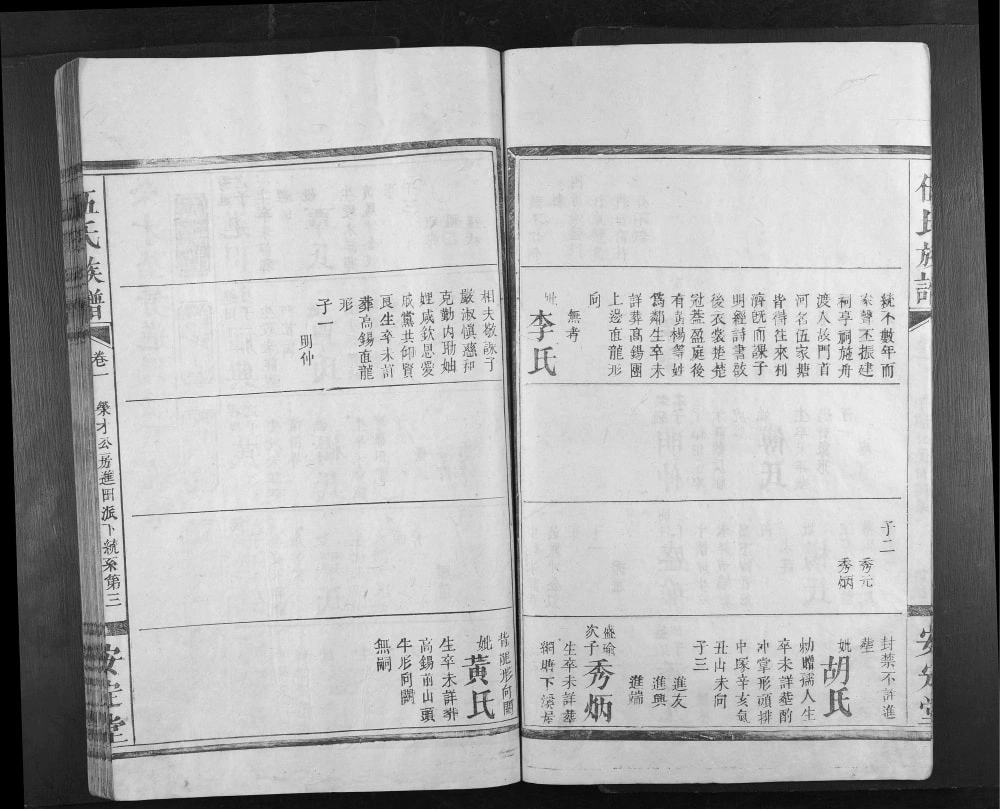 伍氏族譜
安定堂
統不數年而
家聲丕振建
祠亭嗣施舟
渡人故門首
河名伍家塘
皆待往來利
濟既而課子
明經詩書啟
後衣裳楚楚
冠蓋盈庭後
有黃楊等姓
為鄰生卒未
詳葬高錫團
上邊直龍形
向
無考
妣李氏
子二
秀元
秀炳
封禁不許進
葬
妣胡氏
勅贈孺人生
卒未詳葬酌
沖堂形頭排
中塚辛亥氣
丑山未向
子三
進友
進興
進端
盛瑜
次子秀炳
生卒未詳葬
網塘下溪岸
相夫敬課子
嚴淑慎慈和
克勤內助妯
娌咸欽思愛
戚黨共仰賢
良生卒未詳
葬高錫直龍
形
子一
明仲
背龍形向闕
妣黃氏
生卒未詳葬
高錫前山頭
牛形向闕
無嗣
伍氏族譜
卷一
榮才公房進田派下統系第三
安定堂